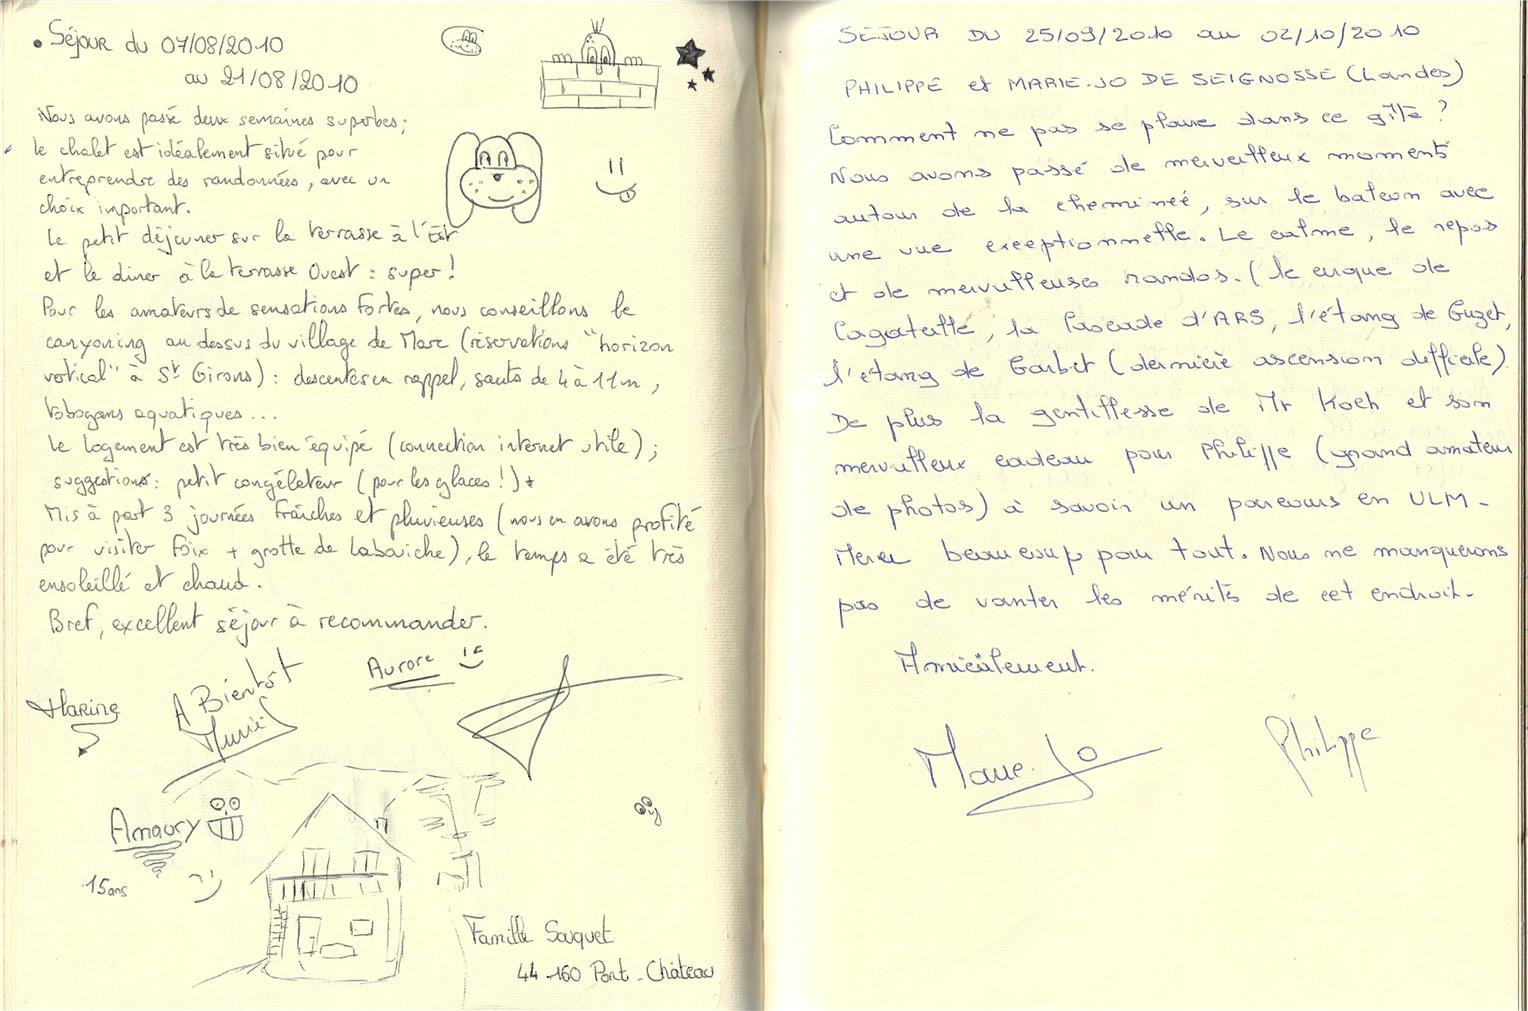 • Séjour du 07/08/2010
au 21/08/2010
Nous avons passé deux semaines superbes ;
le chalet est idéalement situé pour
entreprendre des randonnées, avec un
choix important.
Le petit déjeuner sur la terrasse à l'Est
et le diner à la terrasse Ouest : super !
Pour les amateurs de sensations fortes, nous conseillons le
canyoning au dessus du village de Marc (réservations "horizon
vertical" à St Girons) : descentes en rappel, sauts de 4 à 11m,
tobogans aquatiques...
Le logement est très bien équipé (connection internet utile) ;
suggestions : petit congélateur (pour les glaces !)
Mis à part 3 journées fraîches et pluvieuses (nous en avons profité
pour visiter Foix + grotte de Labouiche), le temps a été très
ensoleillé et chaud.
Bref, excellent séjour à recommander.
Marine
A Bientôt
Muriel
Aurore
Amaury
15 ans
Famille Souquet
44 160 Pont-Château
SEJOUR DU 25/09/2010 au 02/10/2010
PHILIPPE et MARIE-JO DE SEIGNOSSE (Landes)
Comment ne pas se plaire dans ce gîte ?
Nous avons passé de merveilleux moments
autour de la cheminée, sur le balcon avec
une vue exceptionnelle. Le calme, le repos
et de merveilleuses randos. (le cirque de
Cagateille, la Cascade d'ARS, l'étang de Guzet,
l'étang de Garbet (dernière ascension difficile)
De plus la gentillesse de Mr Koch et son
merveilleux cadeau pour Philippe (grand amateur
de photos) à savoir un parcours en ULM.
Merci beaucoup pour tout. Nous ne manquerons
pas de vanter les mérites de cet endroit.
Amicalement.
Marie Jo
Philippe